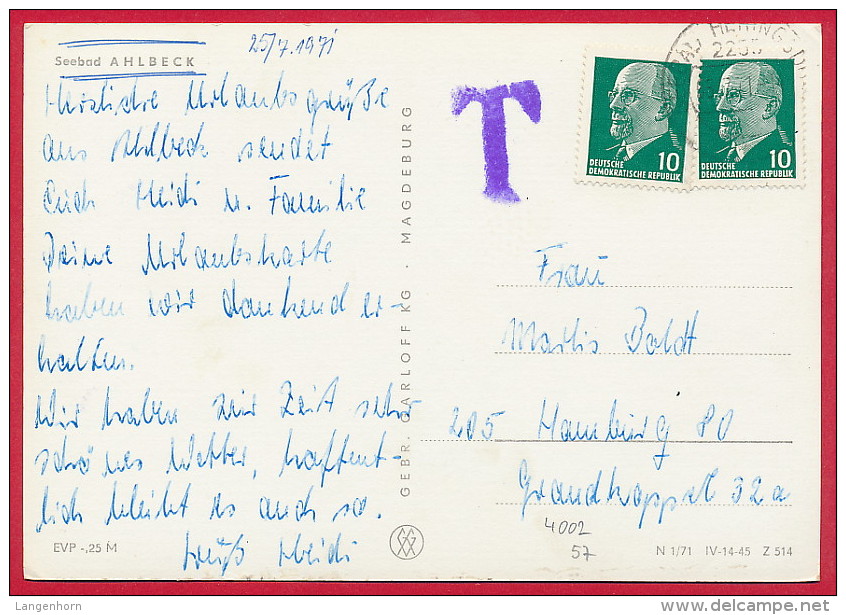 25/7.1971
Seebad AHLBECK
Herzliche Urlaubsgrüße
aus Ahlbeck sendet
Euch Heidi u. Familie
Deine Urlaubskarte
haben wir dankend er-
halten.
Wir haben zur Zeit sehr
schönes Wetter, hoffent-
lich bleibt es auch so.
Gruß Heidi
EVP -,25 M
GEBR. GARLOFF KG · MAGDEBURG
T
HERINGSDORF
DEUTSCHE
DEMOKRATISCHE REPUBLIK
10
DEUTSCHE
DEMOKRATISCHE REPUBLIK
10
Frau
Marlis Boldt
205 Hamburg 80
Grandkoppel 32a
4002
57
N 1/71 IV-14-45 Z 514
Langenhorn
delcampe.net